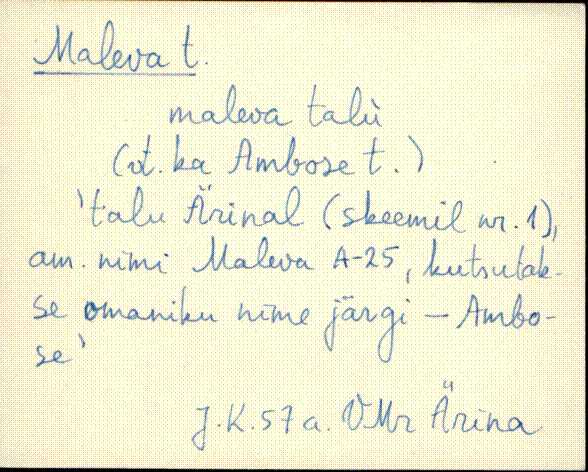 Maleva t.
maleva talù
(vt. ka Ambose t.)
'talu Ärinal (skeemil nr. 1),
am. nimi Maleva A-25, kutsutak-
se omaniku nime järgi – Ambo-
se'
J.K. 57 a. VMr Ärina